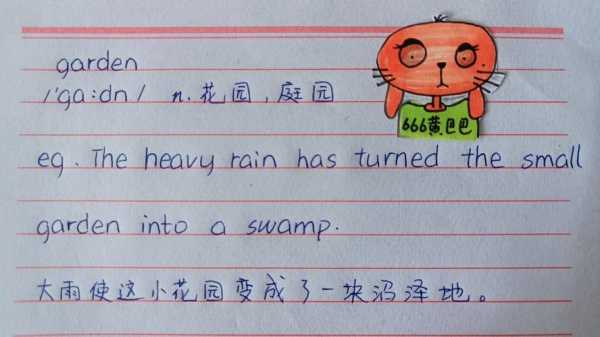 garden
/'ga:dn/ n. 花园,庭园
666黄巴巴
eg. The heavy rain has turned the small
garden into a swamp.
大雨使这小花园变成了一块沼泽地。